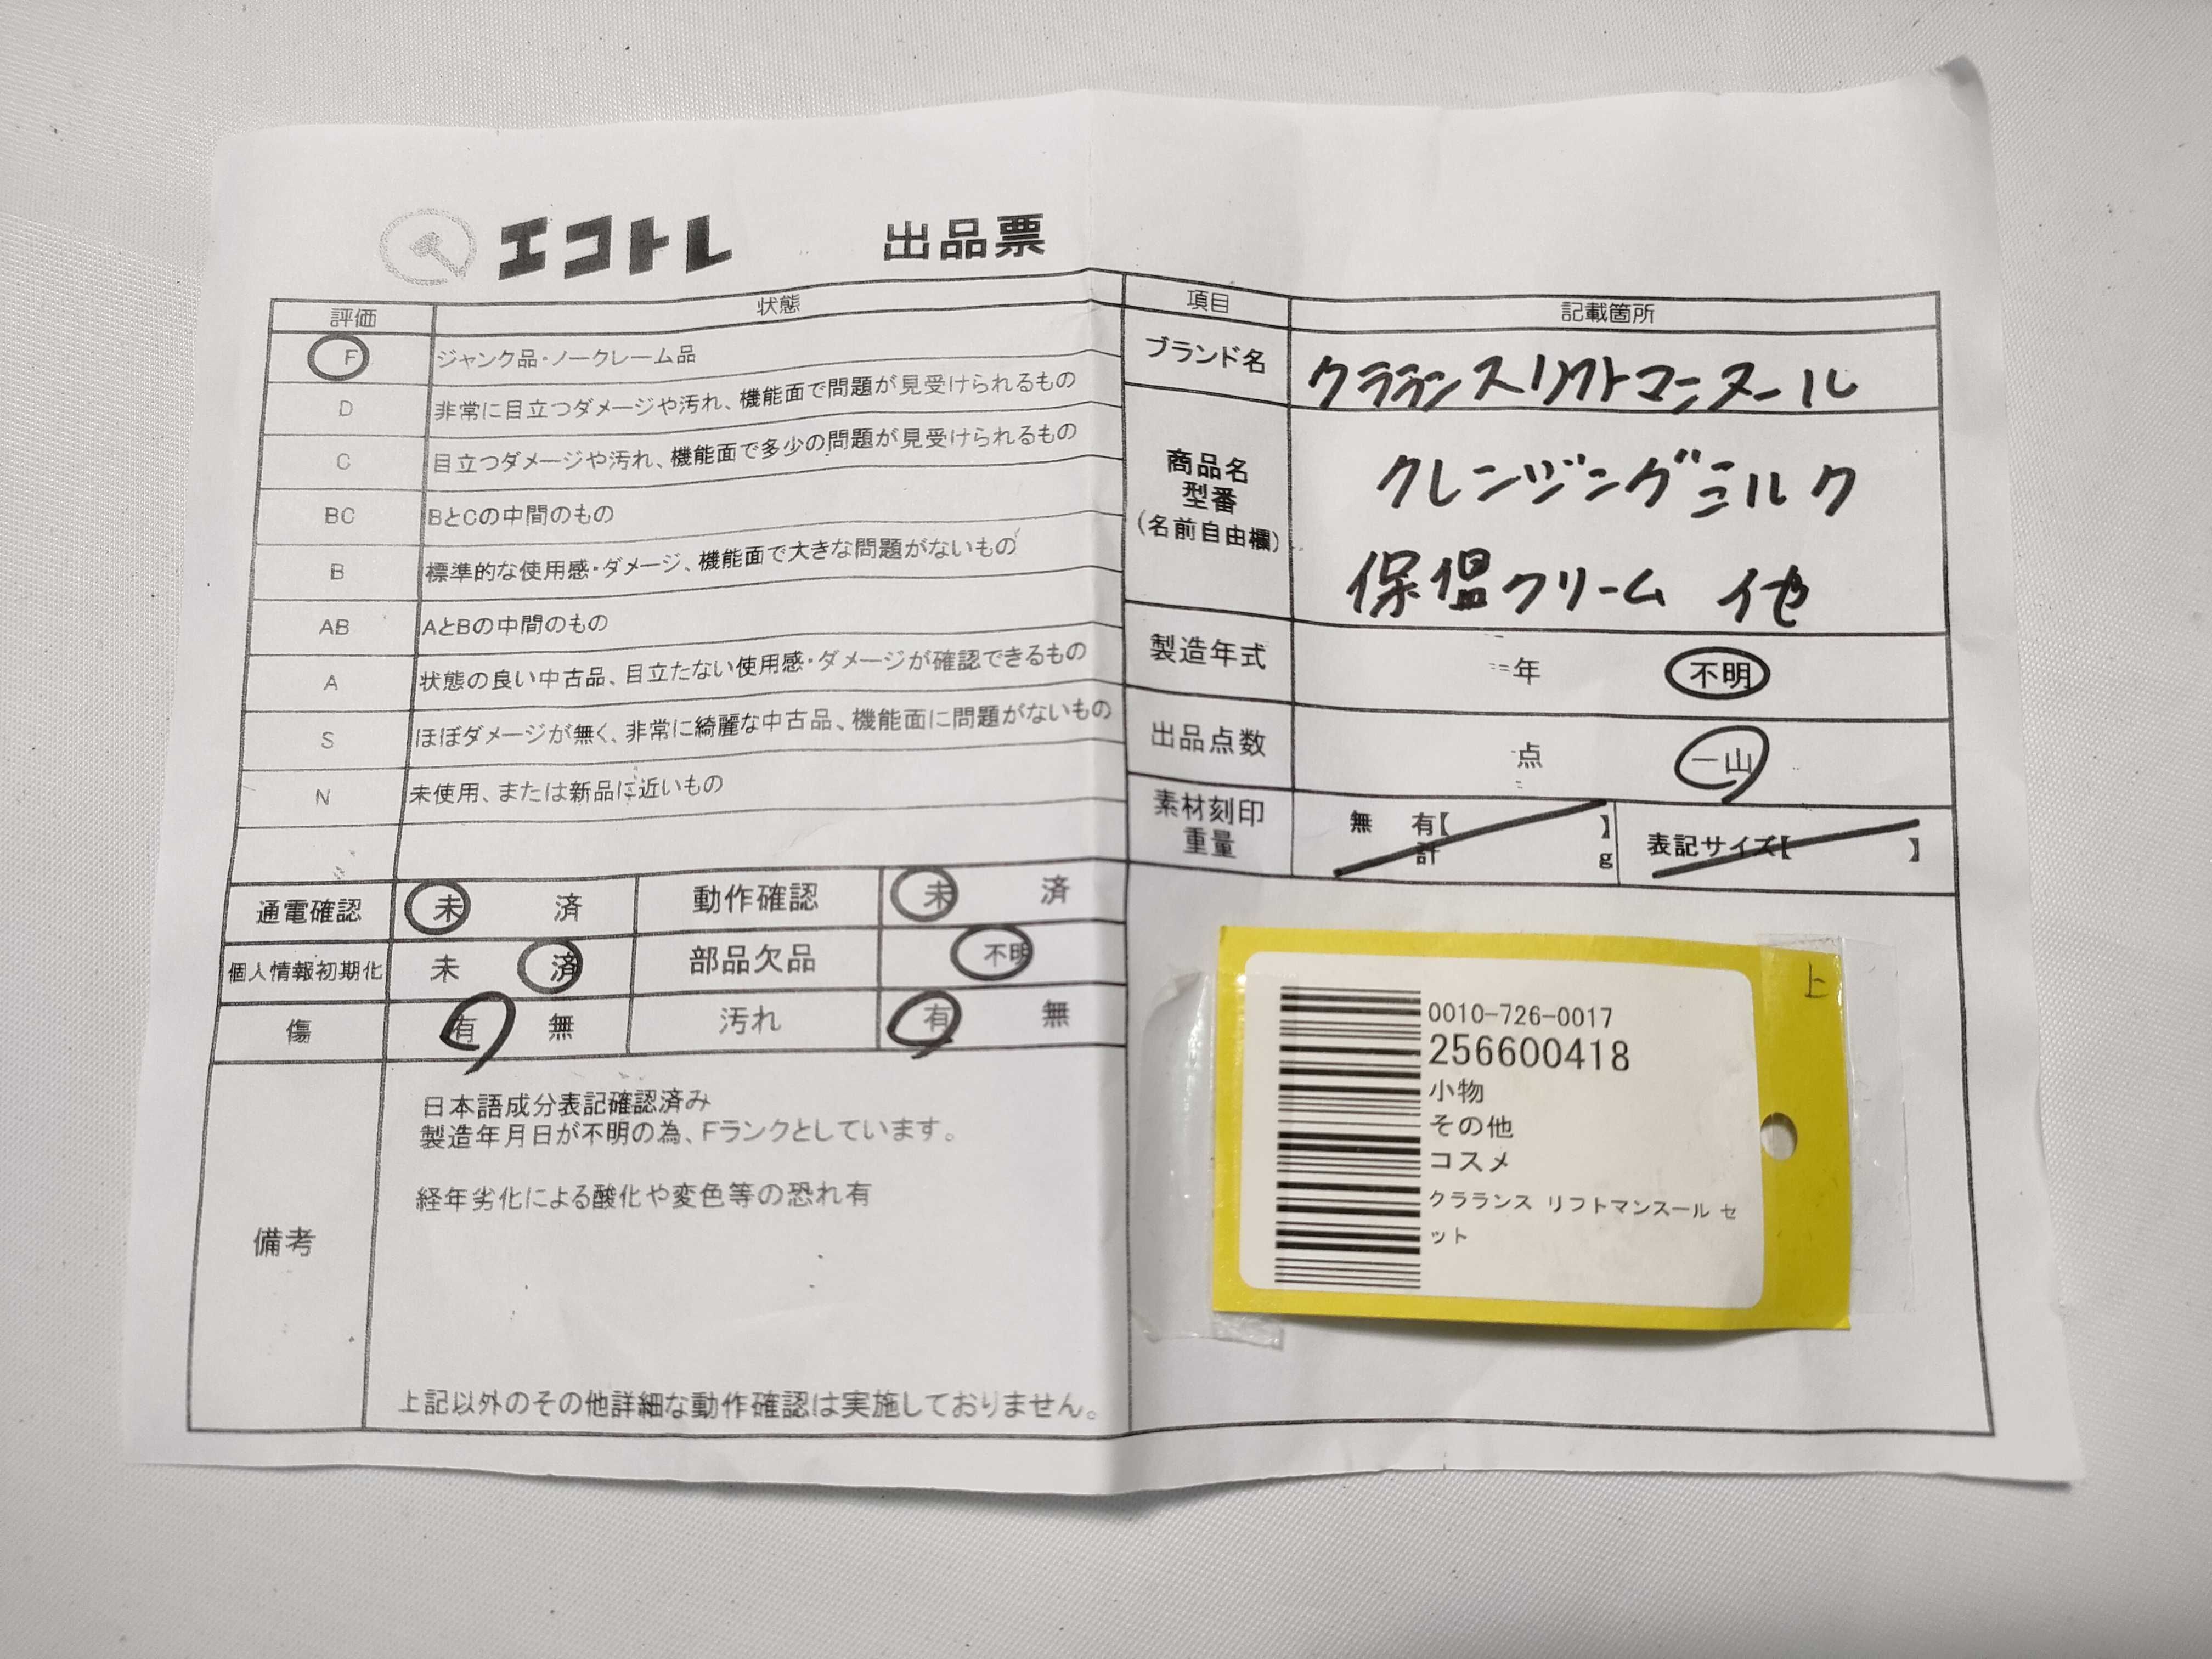 エコトレ 出品票
評価 状態
F ジャンク品・ノークレーム品
D 非常に目立つダメージや汚れ、機能面で問題が見受けられるもの
C 目立つダメージや汚れ、機能面で多少の問題が見受けられるもの
BC BとCの中間のもの
B 標準的な使用感・ダメージ、機能面で大きな問題がないもの
AB AとBの中間のもの
A 状態の良い中古品、目立たない使用感・ダメージが確認できるもの
S ほぼダメージが無く、非常に綺麗な中古品、機能面に問題がないもの
N 未使用、または新品に近いもの
通電確認 未 済 動作確認 未 済
個人情報初期化 未 済 部品欠品 不明
傷 有 無 汚れ 有 無
備考
日本語成分表記確認済み
製造年月日が不明の為、Fランクとしています。
経年劣化による酸化や変色等の恐れ有
上記以外のその他詳細な動作確認は実施しておりません。
項目 記載箇所
ブランド名 クラランスリフトマンスール
商品名
型番
(名前自由欄)
クレンジングミルク
保温クリーム 他
製造年式 年 不明
出品点数 点 一山
素材刻印
重量
無 有【 】
計 g
表記サイズ【 】
上
0010-726-0017
256600418
小物
その他
コスメ
クラランス リフトマンスール セ
ット